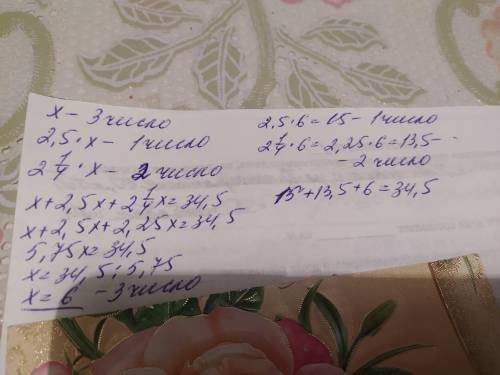 x - 3 число
2,5·x - 1 число
2 1/4 · x - 2 число
x+2,5x+2 1/4 x=34,5
x+2,5x+2,25x=34,5
5,75x=34,5
x=34,5:5,75
x=6 - 3 число
2,5·6=15 - 1 число
2 1/4 ·6=2,25·6=13,5-
- 2 число
15+13,5+6=34,5